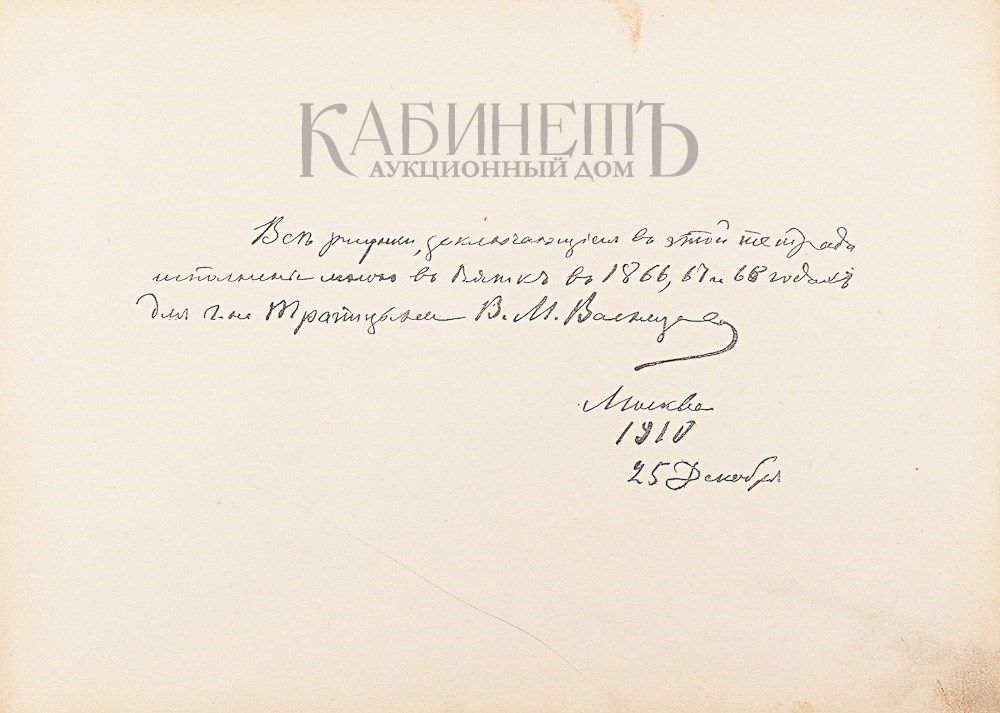 КАБИНЕТЪ
АУКЦИОННЫЙ ДОМ
Всѣ рисунки, заключающіеся въ этой тетради
исполнены мною въ Вяткѣ въ 1866, 67 и 68 годахъ
для г-на Трапицына В. М. Васнецов
Москва
1910
25 Декабря